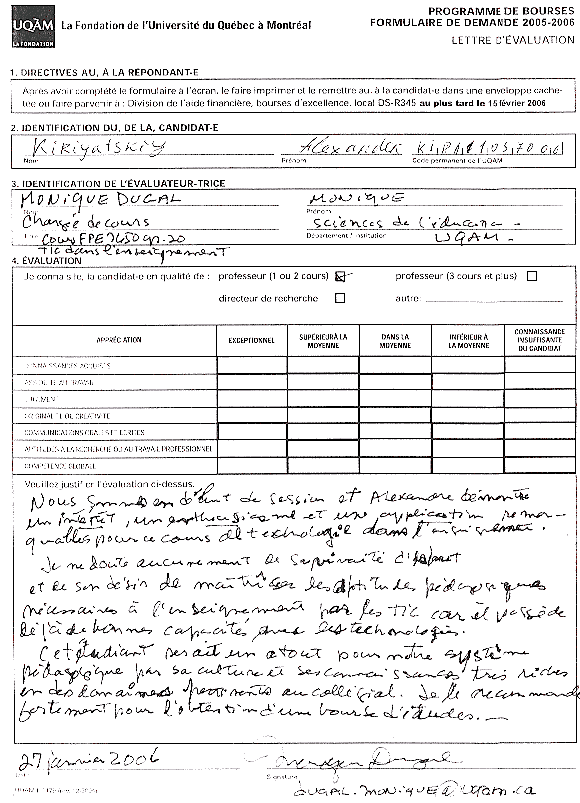 UQÀM
LA FONDATION
La Fondation de l'Université du Québec à Montréal
PROGRAMME DE BOURSES
FORMULAIRE DE DEMANDE 2005-2006
LETTRE D'ÉVALUATION
1. DIRECTIVES AU, À LA RÉPONDANT-E
Après avoir complété le formulaire à l'écran, le faire imprimer et le remettre au, à la candidat-e dans une enveloppe cache-
tée ou faire parvenir à : Division de l'aide financière, bourses d'excellence, local DS-R345 au plus tard le 15 février 2006
2. IDENTIFICATION DU, DE LA, CANDIDAT-E
Kiriyatskiy Alexander
Nom Prénom Code permanent de l'UQAM
3. IDENTIFICATION DE L'ÉVALUATEUR-TRICE
MONIQUE DUGAL MONIQUE
Nom Prénom
Chargée de cours sciences de l'éducation
Titre Cours FPE7650 gp. 20 Département / Institution UQAM -
TIC dans l'enseignement
4. ÉVALUATION
Je connais le, la candidat-e en qualité de : professeur (1 ou 2 cours) professeur (3 cours et plus)
directeur de recherche autre:
APPRÉCIATION EXCEPTIONNEL SUPÉRIEUR À LA MOYENNE DANS LA MOYENNE INFÉRIEUR À LA MOYENNE CONNAISSANCE INSUFFISANTE DU CANDIDAT
CONNAISSANCES ACQUISES
ASSIDUITÉ AU TRAVAIL
JUGEMENT
ORIGINALITÉ OU CRÉATIVITÉ
COMMUNICATIONS ORALES ET ÉCRITES
APTITUDES À LA RECHERCHE OU AU TRAVAIL PROFESSIONNEL
COMPÉTENCE GLOBALE
Veuillez justifier l'évaluation ci-dessus.
Nous sommes en début de session et Alexandre démontre
un intérêt, un enthousiasme et une application remar-
quables pour ce cours de technologie dans l'enseignement.
Je ne doute aucunement de sa d'esprit
et de son désir de maîtriser les aptitudes pédagogiques
nécessaires à l'enseignement par les TIC car il possède
déjà de bonnes capacités avec les technologies.
Cet étudiant serait un atout pour notre système
pédagogique par sa culture et ses connaissances très riches
en des domaines pertinents au collégial. Je le recommande
fortement pour l'obtention d'une bourse d'études.
27 janvier 2006
Signature
dugal.monique@uqam.ca